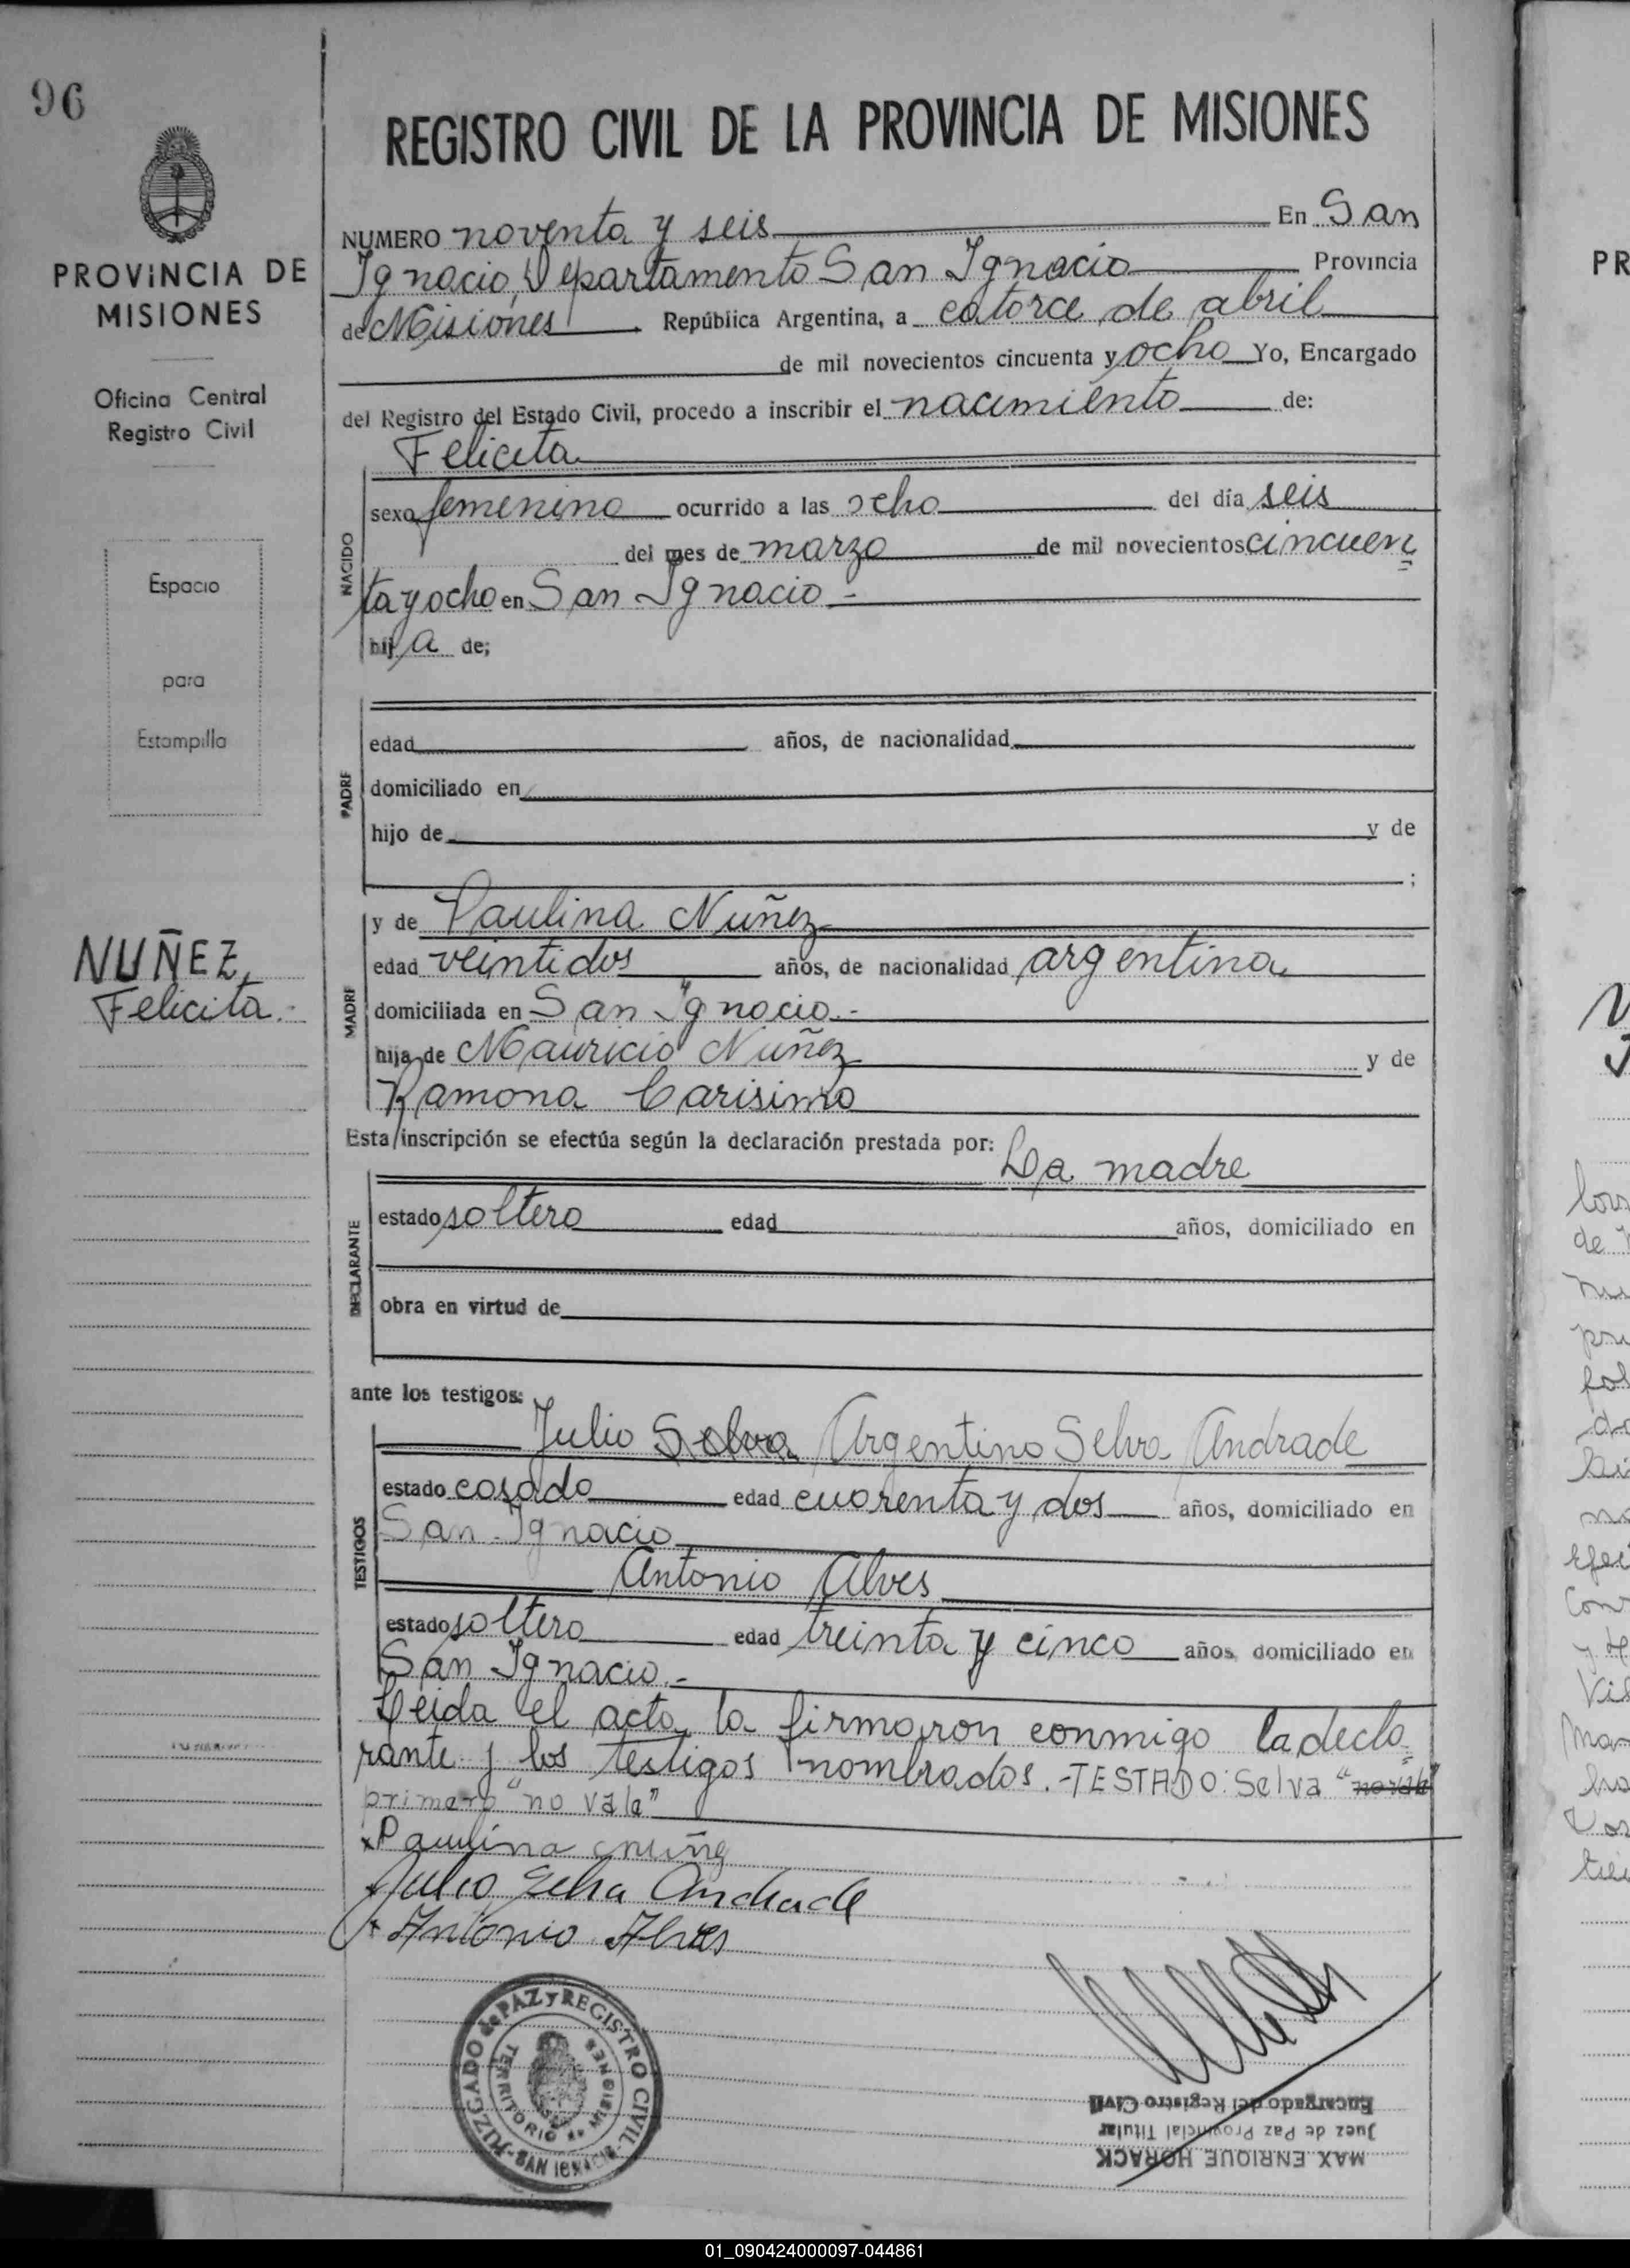 96
PROVINCIA DE
MISIONES
Oficina Central
Registro Civil
Espacio
para
Estampilla
NUÑEZ,
Felicita.-
REGISTRO CIVIL DE LA PROVINCIA DE MISIONES
NUMERO noventa y seis En San
Ignacio, Departamento San Ignacio Provincia
de Misiones República Argentina, a catorce de abril
de mil novecientos cincuenta y ocho Yo, Encargado
del Registro del Estado Civil, procedo a inscribir el nacimiento de:
NACIDO
Felicita
sexo femenino ocurrido a las ocho del día seis
del mes de marzo de mil novecientos cincuen
ta y ocho en San Ignacio.-
hij a de;
PADRE
edad años, de nacionalidad
domiciliado en
hijo de y de
;
MADRE
y de Paulina Nuñez
edad veintidos años, de nacionalidad argentina
domiciliada en San Ignacio.-
hija de Mauricio Nuñez y de
Ramona Carisimo
Esta inscripción se efectúa según la declaración prestada por:
La madre
DECLARANTE
estado soltera edad años, domiciliado en
obra en virtud de
ante los testigos:
TESTIGOS
Julio Selva Argentino Selva Andrade
estado casado edad cuarenta y dos años, domiciliado en
San Ignacio
Antonio Alves
estado soltero edad treinta y cinco años, domiciliado en
San Ignacio.-
Leida el acta, la firmaron conmigo la decla
rante y los testigos nombrados.-TESTADO: Selva "no vale"
primero "no vale"
x Paulina nuñez
x Julio Selva Andrade
x Antonio Alves
JUZGADO de PAZ y REGISTRO CIVIL
TERRITORIO de MISIONES
SAN IGNACIO
MAX ENRIQUE HORACK
Juez de Paz Provincial Titular
Encargado del Registro Civil
PR
de
01_090424000097-044861